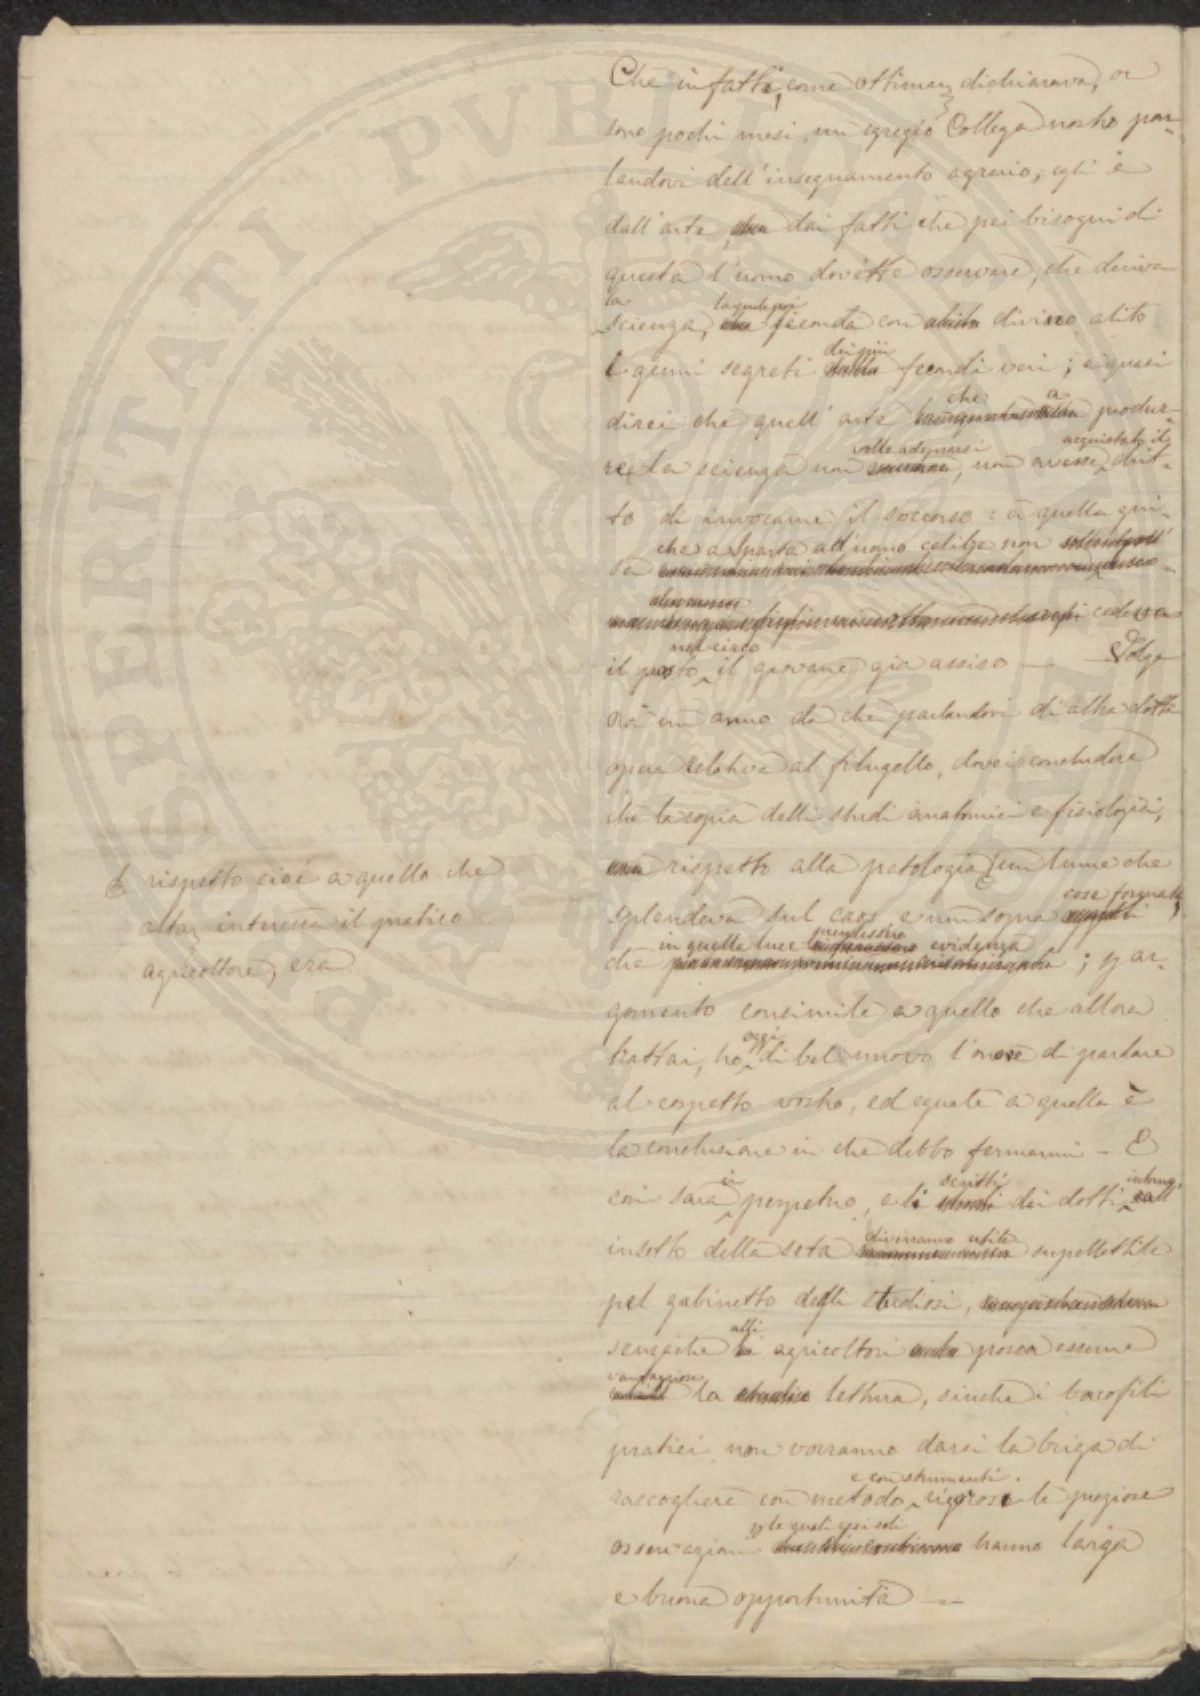 Che infatti, come ottimam. dichiarava, or
sono pochi mesi, un egregio Collega nostro par-
landovi dell'insegnamento agrario, egli è
dall'arte, dai fatti che pei bisogni di
questa l'uomo dovette osservare, che deriva
la
scienza, la quale poi feconda con divino alito
i germi segreti dei più fecondi veri; e quasi
direi che quell'arte che a produr-
re la scienza non volle adoprarsi, non avesse acquistato il drit-
to di invocarne il soccorso: a quella gui-
sa che a Sparta all'uomo celibe non
cedeva
il posto nel circo il giovane già assiso — Volge
ora un anno da che parlandovi di altra dotta
opera relativa al filugello, dovei concludere
che la copia delli studi anatomici e fisiologici,
rispetto alla patologia un lume che
splendeva sul caos, e non sopra cose formate,
che in quella luce evidenza; p ar-
gomento consimile a quello che allora
trattai, ho oggi di bel nuovo l'onore di parlare
al cospetto vostro, ed eguale a quella è
la conclusione in che debbo fermarmi – E
così sarà in perpetuo, e li scritti dei dotti intorno all'
insetto della seta diverranno utile suppellettile
pel gabinetto degli studiosi,
senzachè alli agricoltori possa esserne
vantaggiosa la lettura, sinchè i bacofili
pratici non vorranno darsi la briga di
raccogliere con metodo e con strumenti rigorosi le preziose
osservazioni p le quali essi soli hanno larga
e buona opportunità —
rispetto cioè a quello che
altam. interessa il pratico
agricoltore, era
PROSPERITATI PVBLICAE